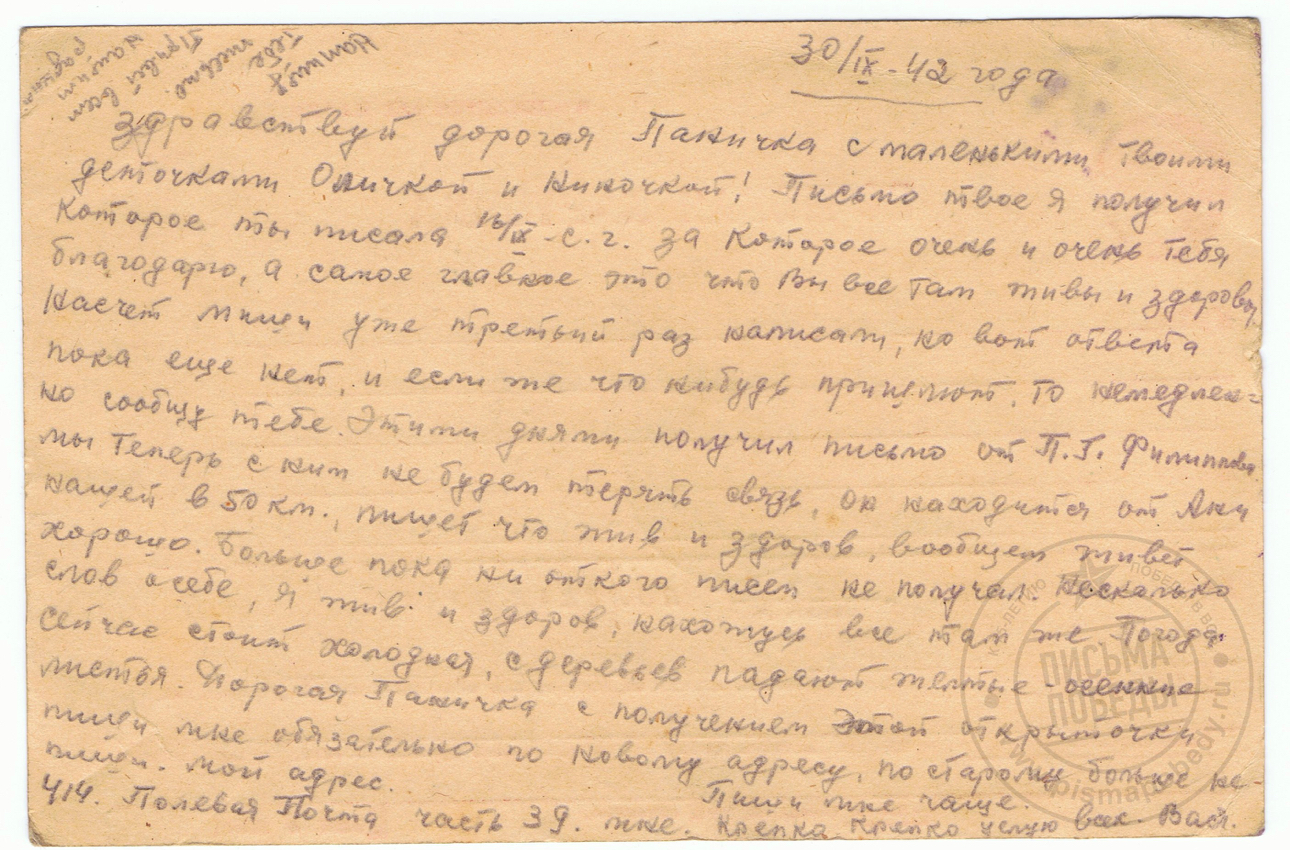 30/IX-42 года
Здравствуй дорогая Паничка с маленькими твоими
деточками Оничкой и Ниночкой! Письмо твое я получил
которое ты писала 16/IX-с.г. за которое очень и очень тебя
благодарю, а самое главное это что Вы все там живы и здоровы,
Насчет Миши уже третий раз написали, но вот ответа
пока еще нет, и если же что нибудь пришлют, то немедлен=
но сообщу тебе. Этими днями получил письмо от П.Г. Филиппова
мы теперь с ним не будем терять связь, он находится от Ани
нашей в 50 км., пишет что жив и здоров, вообщем живет
хорошо. Больше пока ни откого писем не получал. Несколько
слов о себе, Я жив и здоров, нахожусь все там же Погода
сейчас стоит холодная, с деревьев падают желтые-осенние
листья. Дорогая Паничка с получением этой открыточки
пиши мне обязательно по новому адресу, по старому больше не-
пиши. Мой адрес. Пиши мне чаще.
414. Полевая Почта часть 39. мне. Крепко крепко целую всех. Вася.
Напиши
тебе письмо.
Привет всем
нашим
родным
ПИСЬМА
ПОБЕДЫ
www.pismapobedy.ru